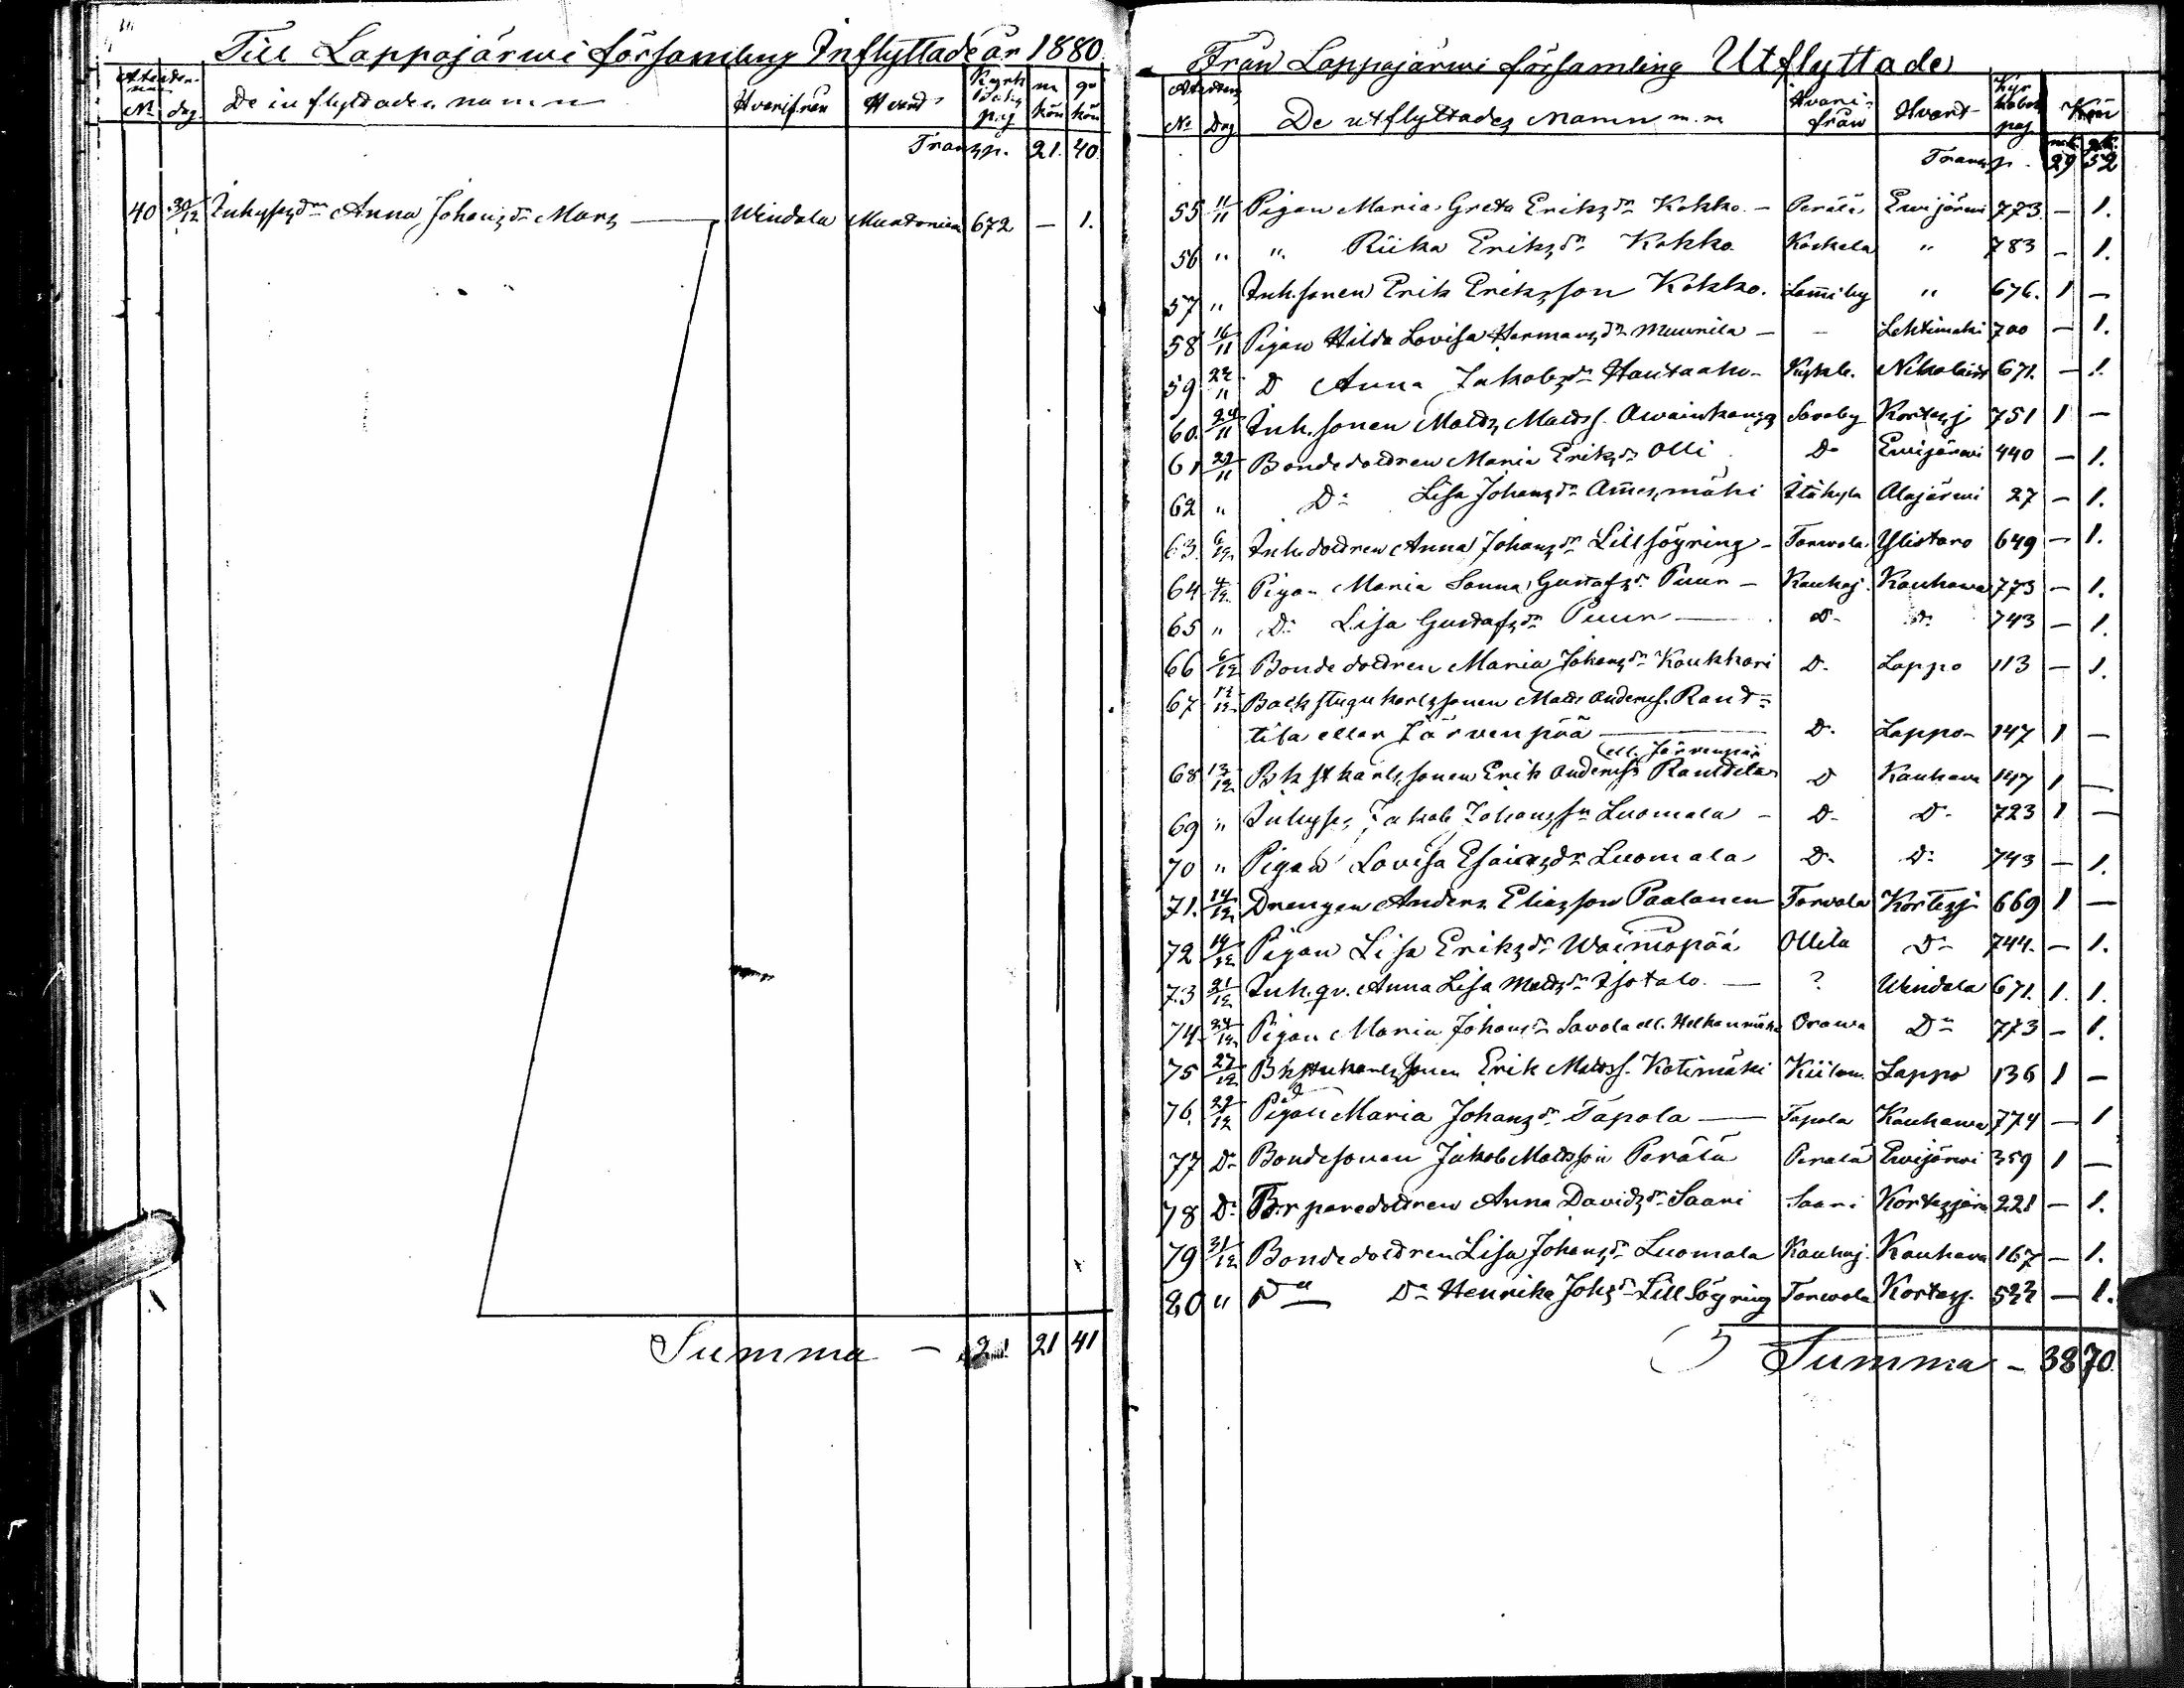 Till Lappajärwi församling Inflyttade år 1880.
No dag De inflyttades namn Hvarifrån Hvart Kyrk Boks pag m kön qv kön
Transp. 21. 40.
40 30/12 Inhyses dn Anna Johans dr Mars — Windala 672 — 1.
Summa — 21 41
Från Lappajärwi församling Utflyttade
No Dag De utflyttades namn m.m Hvari-från Hvart Kyr kobok pag Kön
Transp. 29 52
55 11/11 Pigan Maria Greta Eriks dr Kokko — Perälä Ewijärwi 773 — 1.
56 " " Riika Eriks dr Kokko Koskela " 783 — 1.
57 " Inh. sonen Erik Eriksson Kokko. Lamiby " 676. 1 —
58 16/11 Pigan Hilda Lovisa Hermans dr Muurila — — Lehtimäki 700 — 1.
59 22/11 D Anna Jakobs dr Hautaaho — Nikolaist 671. — 1.
60. 24/11 Inh. sonen Matts Matss. Savoby Kortesj 751 1 —
61 29/11 Bondedottren Maria Eriks dr Olli Do Ewijärwi 440 — 1.
62 " Do Lisa Johans dr Itäkylä Alajärwi 27 — 1.
63. Inh dottren Anna Johans dr Lillsöyring — Torwola. Ylistaro 649 — 1.
64 4/12. Pigan Maria Sanna Gustafs dr Puur — Kauhaj. Kauhawa 773 — 1.
65 " Do Lisa Gustafs dr Puur — Do Do 743 — 1.
66 6/12 Bondedottren Maria Johans dr Koukkari D. Lappo 113 — 1.
67 12/12 Backstugukarlssonen Matts Anderss. Rant=
tila eller Järvenpää — D. Lappo — 147 1 —
(ell. Järvenpää
68 13/12 Bkstkarlssonen Erik Anderss. Rantdila D Kauhava 147 1 —
69 " Inhyss. Jakob Johansson Luomala — D. D. 723 1 —
70 " Pigan Lovisa Esaias dr Luomala D. D: 743 — 1.
71. 14/12 Drengen Anders Eliasson Paalanen Torvola Kortesj 669 1 —
72 19/12 Pigan Lisa Eriks dr Wainiopää Ollila Do 744. — 1.
73 21/12 Inh. qv. Anna Lisa Matts dr Isotalo. — ? Windala 671. 1. 1.
74 24/12 Pigan Maria Johans dr Savola ell. Orawa Do 773 — 1.
75 27/12 Bkstukarlssonen Erik Matss. Kotimäki Lappo 136 1 —
76. 29/12 Pigan Maria Johans dr Tapola — Tapola Kauhawa 774 — 1
77 Do Bondesonen Jakob Mattsson Perälä Perälä Ewijärwi 359 1 —
78 Do Anna Davids dr Saari Saari Kortesjärvi 221 — 1.
79 31/12 Bondedottren Lisa Johans dr Luomala Kauhaj. Kauhava 167 — 1.
80 " Do Henrika Johs dr Lillsöyring Torwola Kortesj. 522 — 1.
Summa — 38 70.